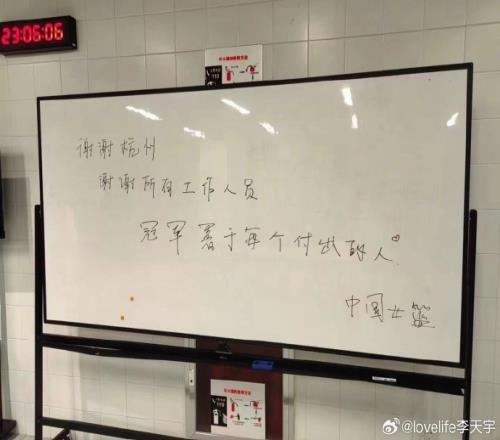 23:06:06
谢谢杭州
谢谢所有工作人员
冠军署于每个付出的人♡
中国女篮
@lovelife李天宇